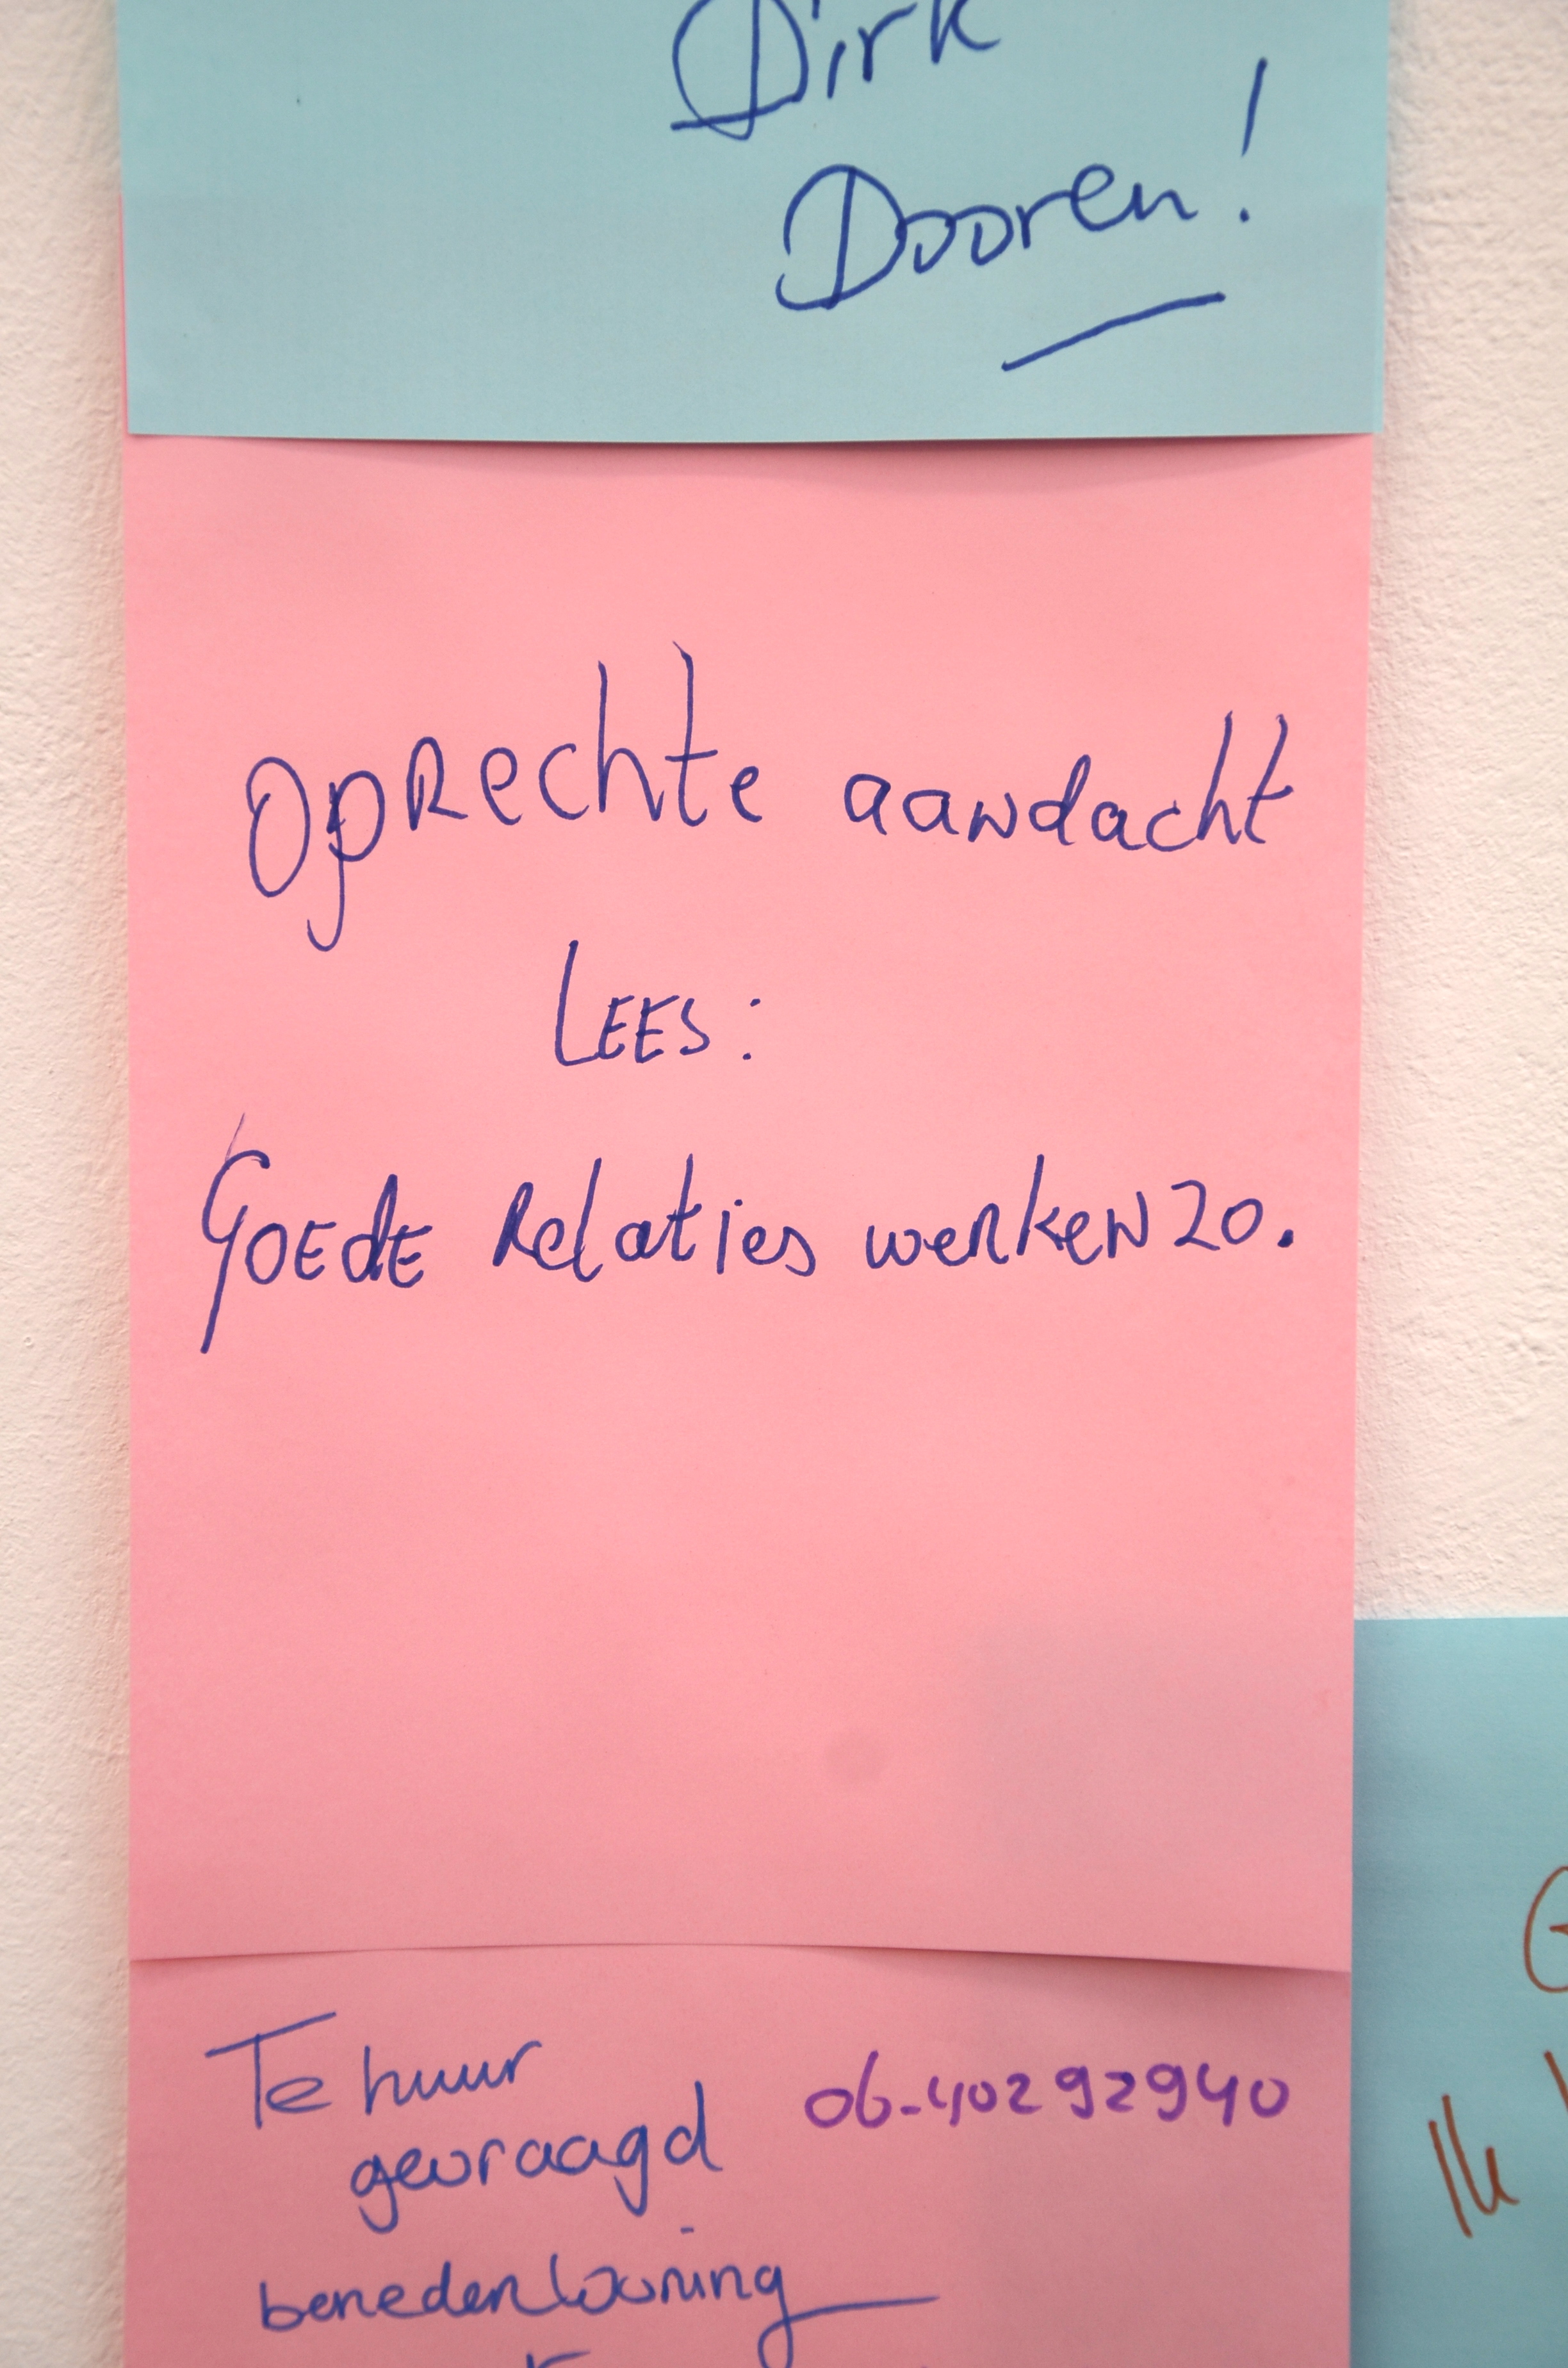 Dirk
Dooren!
OpRechte aandacht
LEES:
GOEdE Relaties werken zo.
Te huur
gevraagd
06-40292940
benedenwoning
Ik